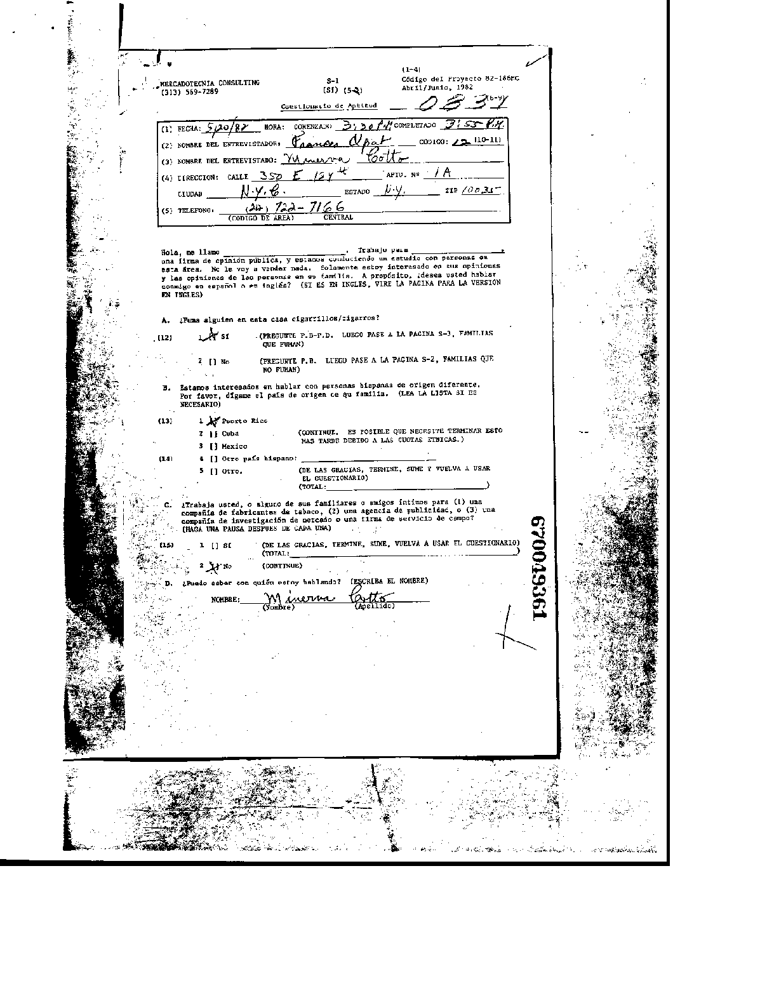 (1-4)
MERCADOTECNIA CONSULTING S-1 Código del Proyecto 82-166PC
(313) 569-7289 (SI) (5-) Abril/Junio, 1982
Cuestionario de Aptitud 033
(1) FECHA: 5/20/82 HORA: COMENZADO 3:30 P.M COMPLETADO 3:55 P.M.
(2) NOMBRE DEL ENTREVISTADOR: Frances CODIGO: 12 (10-11)
(3) NOMBRE DEL ENTREVISTADO: Minerva Cotto
(4) DIRECCION: CALLE 350 E 124 APTO. Nº 1A
CIUDAD N.Y.C. ESTADO N.Y. ZIP 10035
(5) TELEFONO: (212) 722-7166
(CODIGO DE AREA) CENTRAL
Hola, me llamo . Trabajo para ,
una firma de opinión pública, y estamos conduciendo un estudio con personas en
esta área. No le voy a vender nada. Solamente estoy interesado en sus opiniones
y las opiniones de las personas en su familia. A propósito, ¿desea usted hablar
conmigo en español o en inglés? (SI ES EN INGLES, VIRE LA PAGINA PARA LA VERSION
EN INGLES)
A. ¿Fuma alguien en esta casa cigarrillos/cigarros?
(12) 1 [X] SI (PREGUNTE P.B-P.D. LUEGO PASE A LA PAGINA S-3, FAMILIAS
QUE FUMAN)
2 [] No (PREGUNTE P.B. LUEGO PASE A LA PAGINA S-2, FAMILIAS QUE
NO FUMAN)
B. Estamos interesados en hablar con personas hispanas de origen diferente.
Por favor, dígame el país de origen de su familia. (LEA LA LISTA SI ES
NECESARIO)
(13) 1 [X] Puerto Rico
2 [] Cuba (CONTINUE. ES POSIBLE QUE NECESITE TERMINAR ESTO
MAS TARDE DEBIDO A LAS CUOTAS ETNICAS.)
3 [] Mexico
(14) 4 [] Otro país hispano:
5 [] Otro. (DE LAS GRACIAS, TERMINE, SUME Y VUELVA A USAR
EL CUESTIONARIO)
(TOTAL: )
C. ¿Trabaja usted, o alguno de sus familiares o amigos íntimos para (1) una
compañía de fabricantes de tabaco, (2) una agencia de publicidad, o (3) una
compañía de investigación de mercado o una firma de servicio de campo?
(HAGA UNA PAUSA DESPUES DE CADA UNA)
(15) 1 [] SI (DE LAS GRACIAS, TERMINE, SUME, VUELVA A USAR EL CUESTIONARIO)
(TOTAL: )
2 [X] No (CONTINUE)
D. ¿Puedo saber con quién estoy hablando? (ESCRIBA EL NOMBRE)
NOMBRE: Minerva Cotto
(Nombre) (Apellido)
670049361